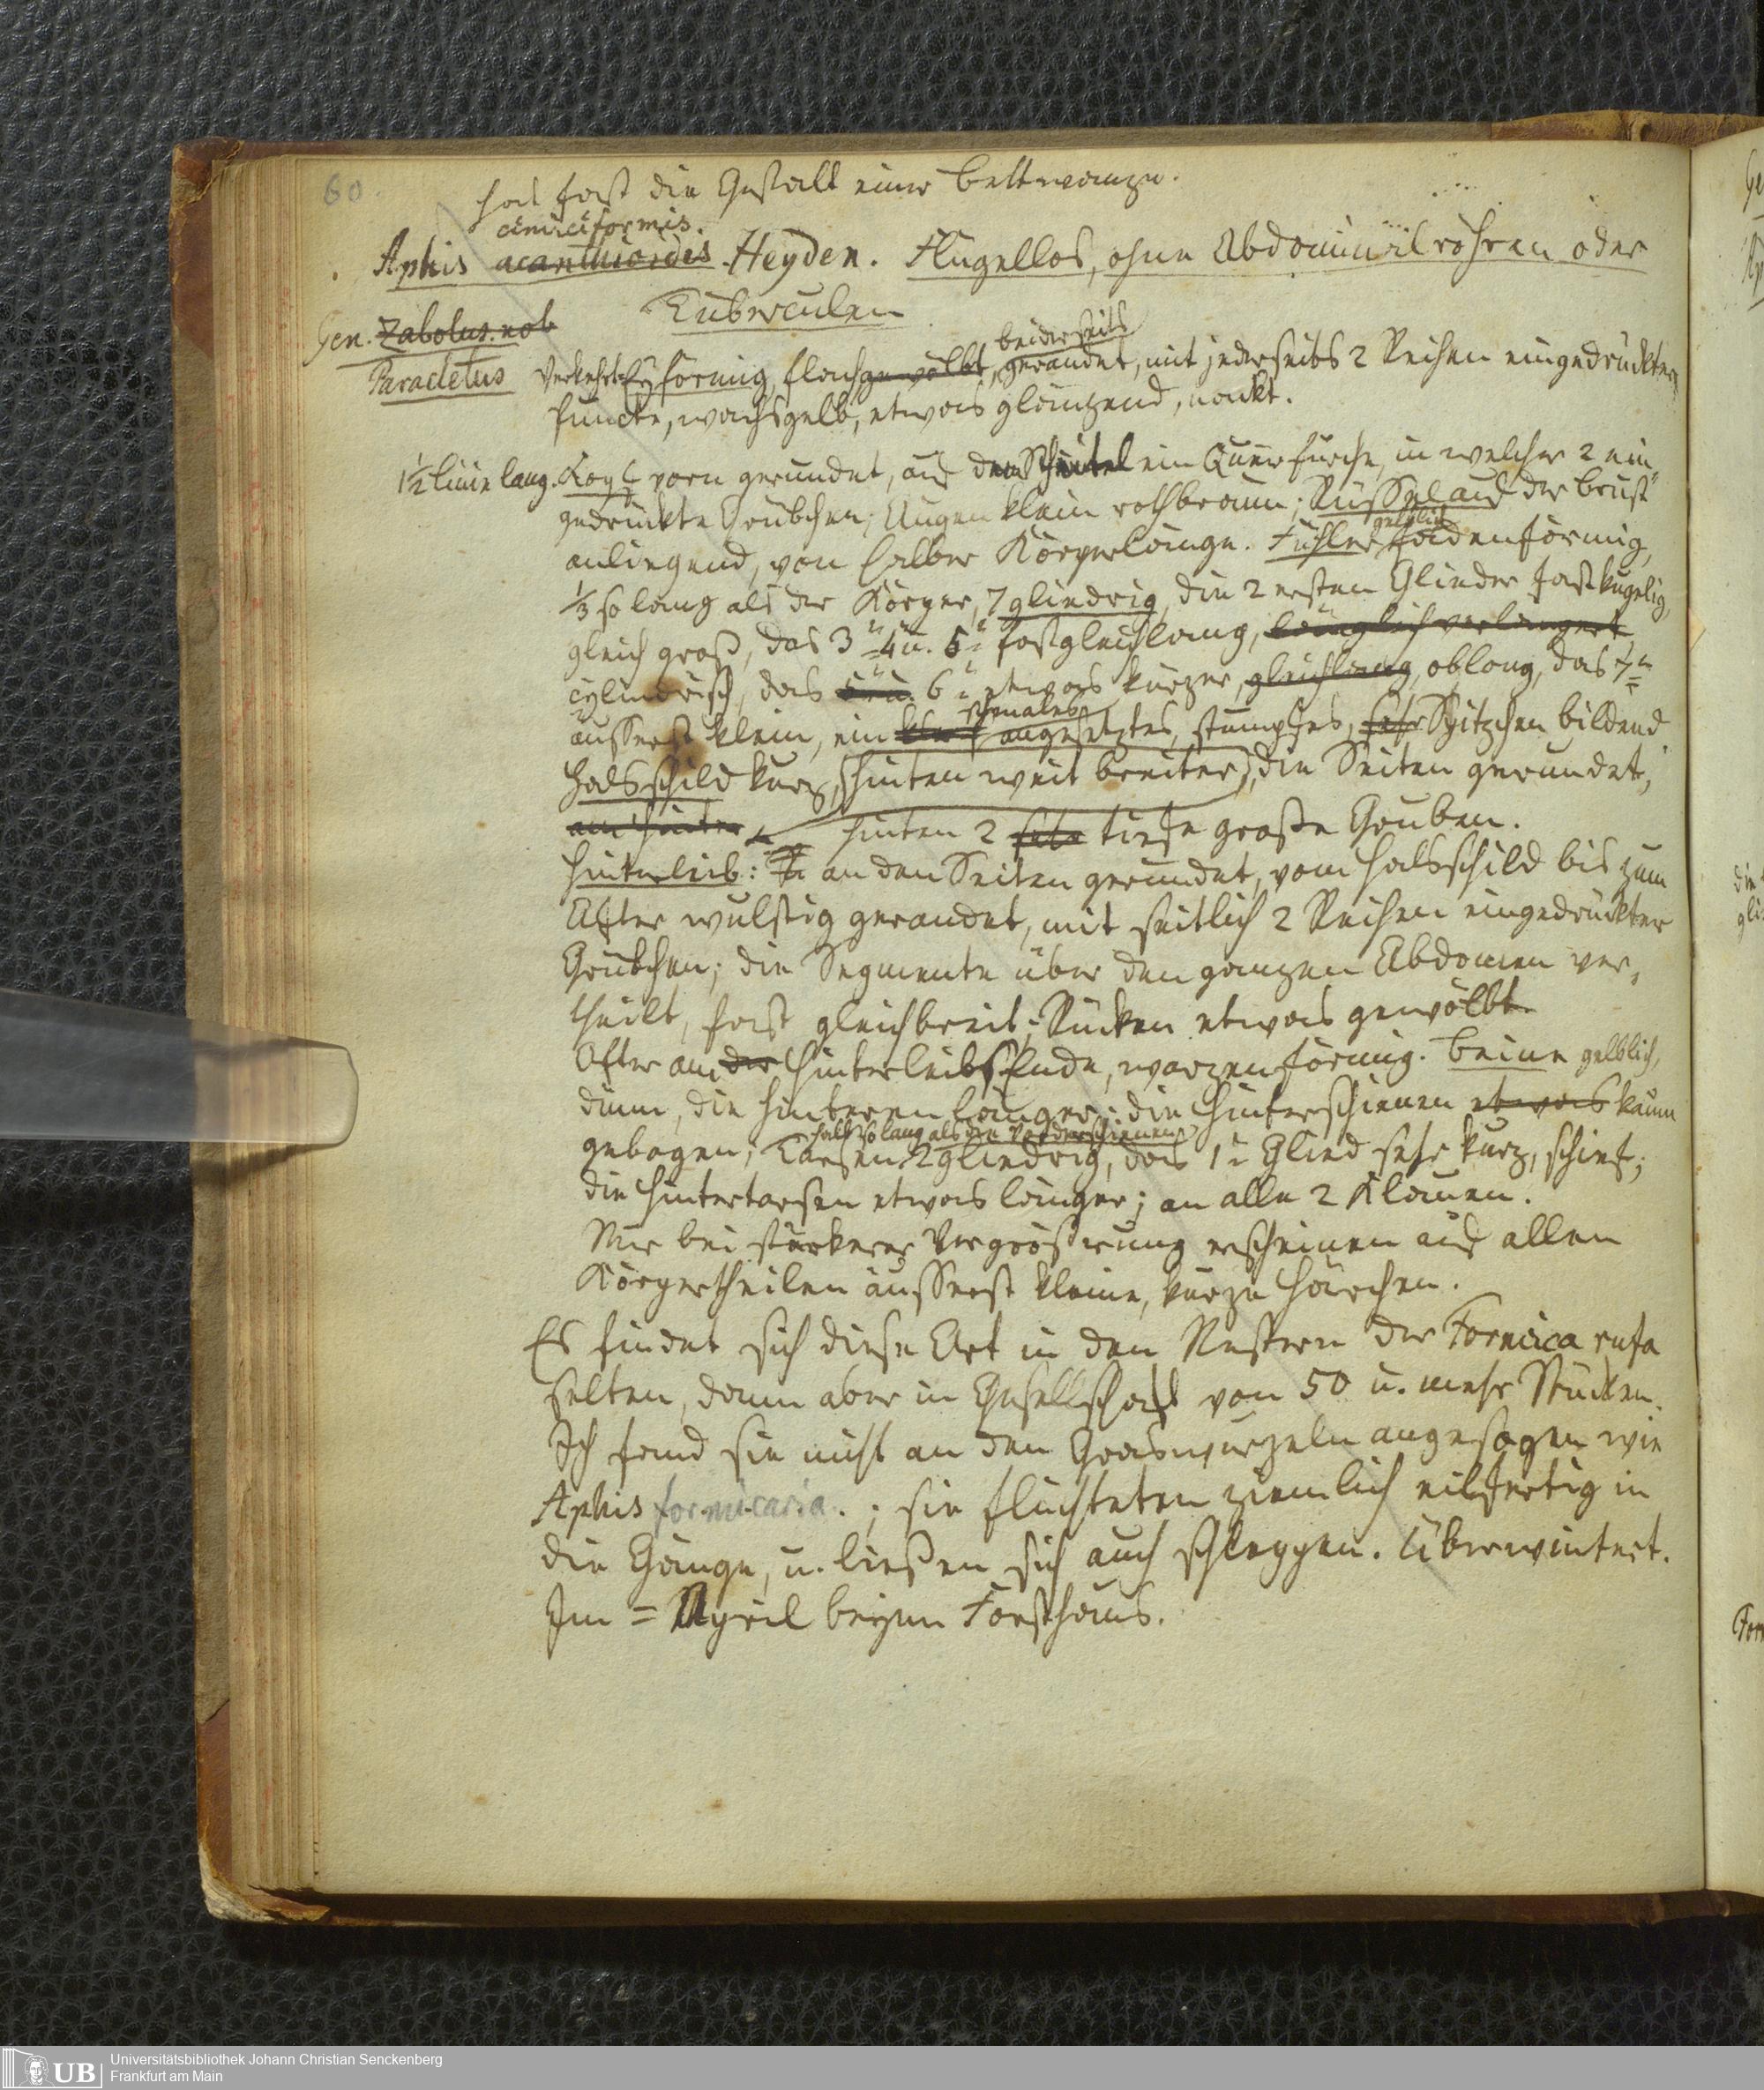 60
hat fast die Gestalt einer Bettwanze.
cimiciformis.
Aphis acanthioides Heyden. Flügellos, ohne Abdominalröhren oder
Tuberculen
Gen. Zabolus. nob
Paracletus
beiderseits
Verkehrt-Eyförmig, flachgewölbt, gerandet, mit jederseits 2 Reihen eingedrückter
Puncte, wachsgelb, etwas glänzend, nackt.
1½ Linie lang. Kopf vorn gerundet, auf dem Scheitel ein Querfurche, in welcher 2 ein-
gedrückte Grübchen; Augen klein rothbraun; Rüssel auf der Brust
gelblich
anliegend, von halber Körperlänge. Fühler fadenförmig,
⅓ so lang als der Körper, 7gliedrig, die 2 ersten Glieder fast kugelig,
gleich groß, das 3 4 u. 5 fast gleichlang, länglich verlängert
cylindrisch, das 5 u. 6 etwas kürzer, gleichlang, oblong, das 7
schmales
äusserst klein, ein angesetztes, stumpfes, sehr Spitzchen bildend
Halsschild kurz, hinten weit breiter, die Seiten gerundet,
am Hinter hinten 2 sehr tiefe große Gruben.
Hinterleib: an den Seiten gerundet, vom Halsschild bis zum
After wulstig gerandet, mit seitlich 2 Reihen eingedrückter
Grübchen; die Segmente über den ganzen Abdomen ver-
theilt, fast gleichbreit; Rücken etwas gewölbt
After am der Hinterleibs Ende, warzenförmig. Beine gelblich,
dünn, die hinteren länger; die Hinterschienen etwas kaum
halb so lang als die Vorderschienen
gebogen; Tarsen 2gliedrig, das 1 Glied sehr kurz, schief;
die Hintertarsen etwas länger; an alle 2 Klauen.
Nur bei starkerer Vergrößerung erscheinen auf allen
Körpertheilen äusserst kleine, kurze Härchen.
Es findet sich diese Art in den Nestern der Formica rufa
selten, dann aber in Gesellschaft von 50 u. mehr Stücken.
Ich fand sie nicht an den Graswurzeln angesogen wie
Aphis formicaria. ; sie flüchteten ziemlich eilfertig in
die Gänge, u. ließen sich auch schleppen. Überwintert.
Im = April beym Forsthaus.
Universitätsbibliothek Johann Christian Senckenberg
Frankfurt am Main
UB